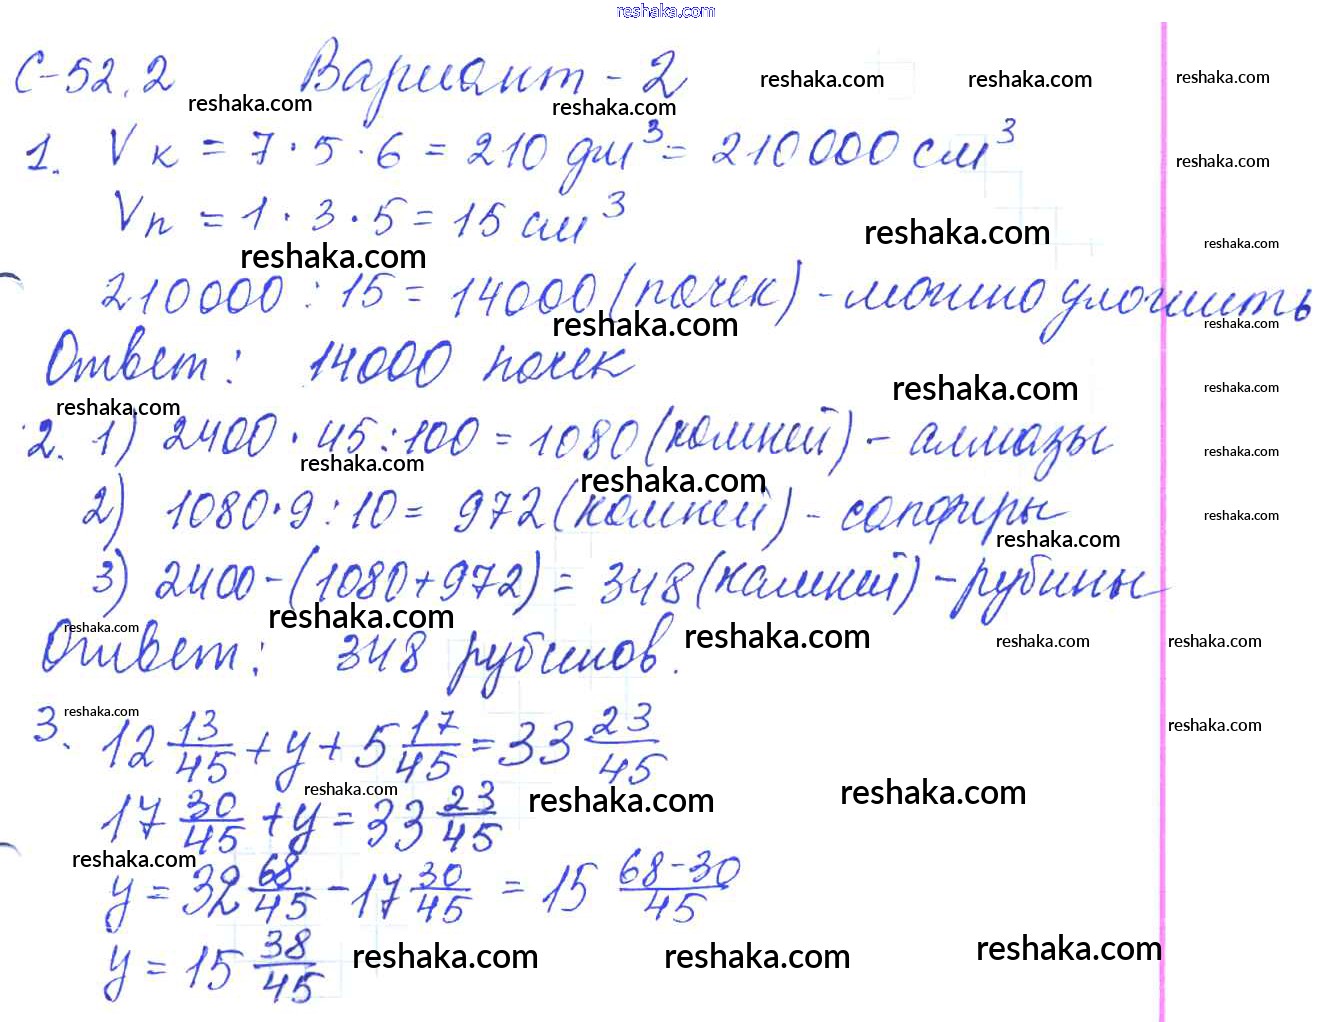 reshaka.com
С-52.2 Вариант - 2
reshaka.com reshaka.com reshaka.com
reshaka.com reshaka.com
1. Vк = 7 · 5 · 6 = 210 дм³ = 210000 см³
reshaka.com
Vп = 1 · 3 · 5 = 15 см³
reshaka.com reshaka.com
reshaka.com
210000 : 15 = 14000 (пачек) - можно уложить
reshaka.com reshaka.com
Ответ: 14000 пачек
reshaka.com reshaka.com
reshaka.com
2. 1) 2400 · 45 : 100 = 1080 (камней) - алмазы
reshaka.com reshaka.com reshaka.com
2) 1080 · 9 : 10 = 972 (камней) - сапфиры
reshaka.com reshaka.com
3) 2400 - (1080 + 972) = 348 (камней) - рубины
reshaka.com reshaka.com reshaka.com reshaka.com reshaka.com
Ответ: 348 рубинов.
reshaka.com reshaka.com
3. 12 13/45 + y + 5 17/45 = 33 23/45
reshaka.com reshaka.com reshaka.com
17 30/45 + y = 33 23/45
reshaka.com
y = 32 68/45 - 17 30/45 = 15 68-30/45
y = 15 38/45
reshaka.com reshaka.com reshaka.com